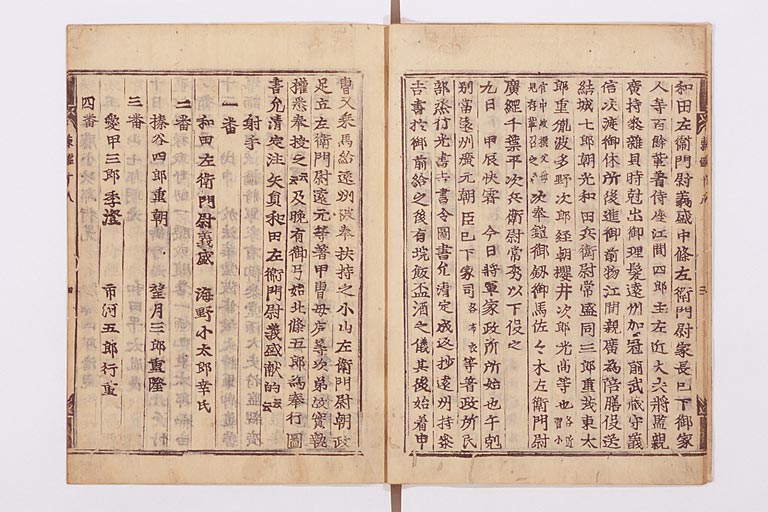 和田左衛門尉義盛中條左衛門尉家長已下御家
人等百餘輩著侍座江間四郎主左近大夫將監親
廣持参雜具時尅出御理髪遠州加冠前武蔵守義
信次渡御休所後進御前物江間親廣為陪膳役送
結城七郎朝光和田兵衛尉常盛同三郎重茂東太
郎重胤波多野次郎経朝櫻井次郎光高等也 各近習小
官中被撰父母見存輩召之云々 次奉鎧御劔御馬佐々木左衛門尉
廣經千葉平次兵衛尉常秀以下役之
九日 甲辰快霽 今日將軍家政所始也午剋
別當遠州廣元朝臣已下家司 各布衣 等著政所民
部丞行光書吉書令圖書允清定成返抄遠州持参
吉書於御前給之後有垸飯盃酒之儀其後始著甲
冑又乗馬給遠州被奉扶持之小山左衛門尉朝政
足立左衛門尉遠元等著甲冑母廬等次第故實執
權悉奉授之云云及晩有御弓始北條五郎為奉行圖
書允清定注矢員和田左衛門尉義盛献的云云
射手
一番
和田左衛門尉義盛 海野小太郎幸氏
二番
榛谷四郎重朝 望月三郎重隆
三番
愛甲三郎季澄 市河五郎行重
四番